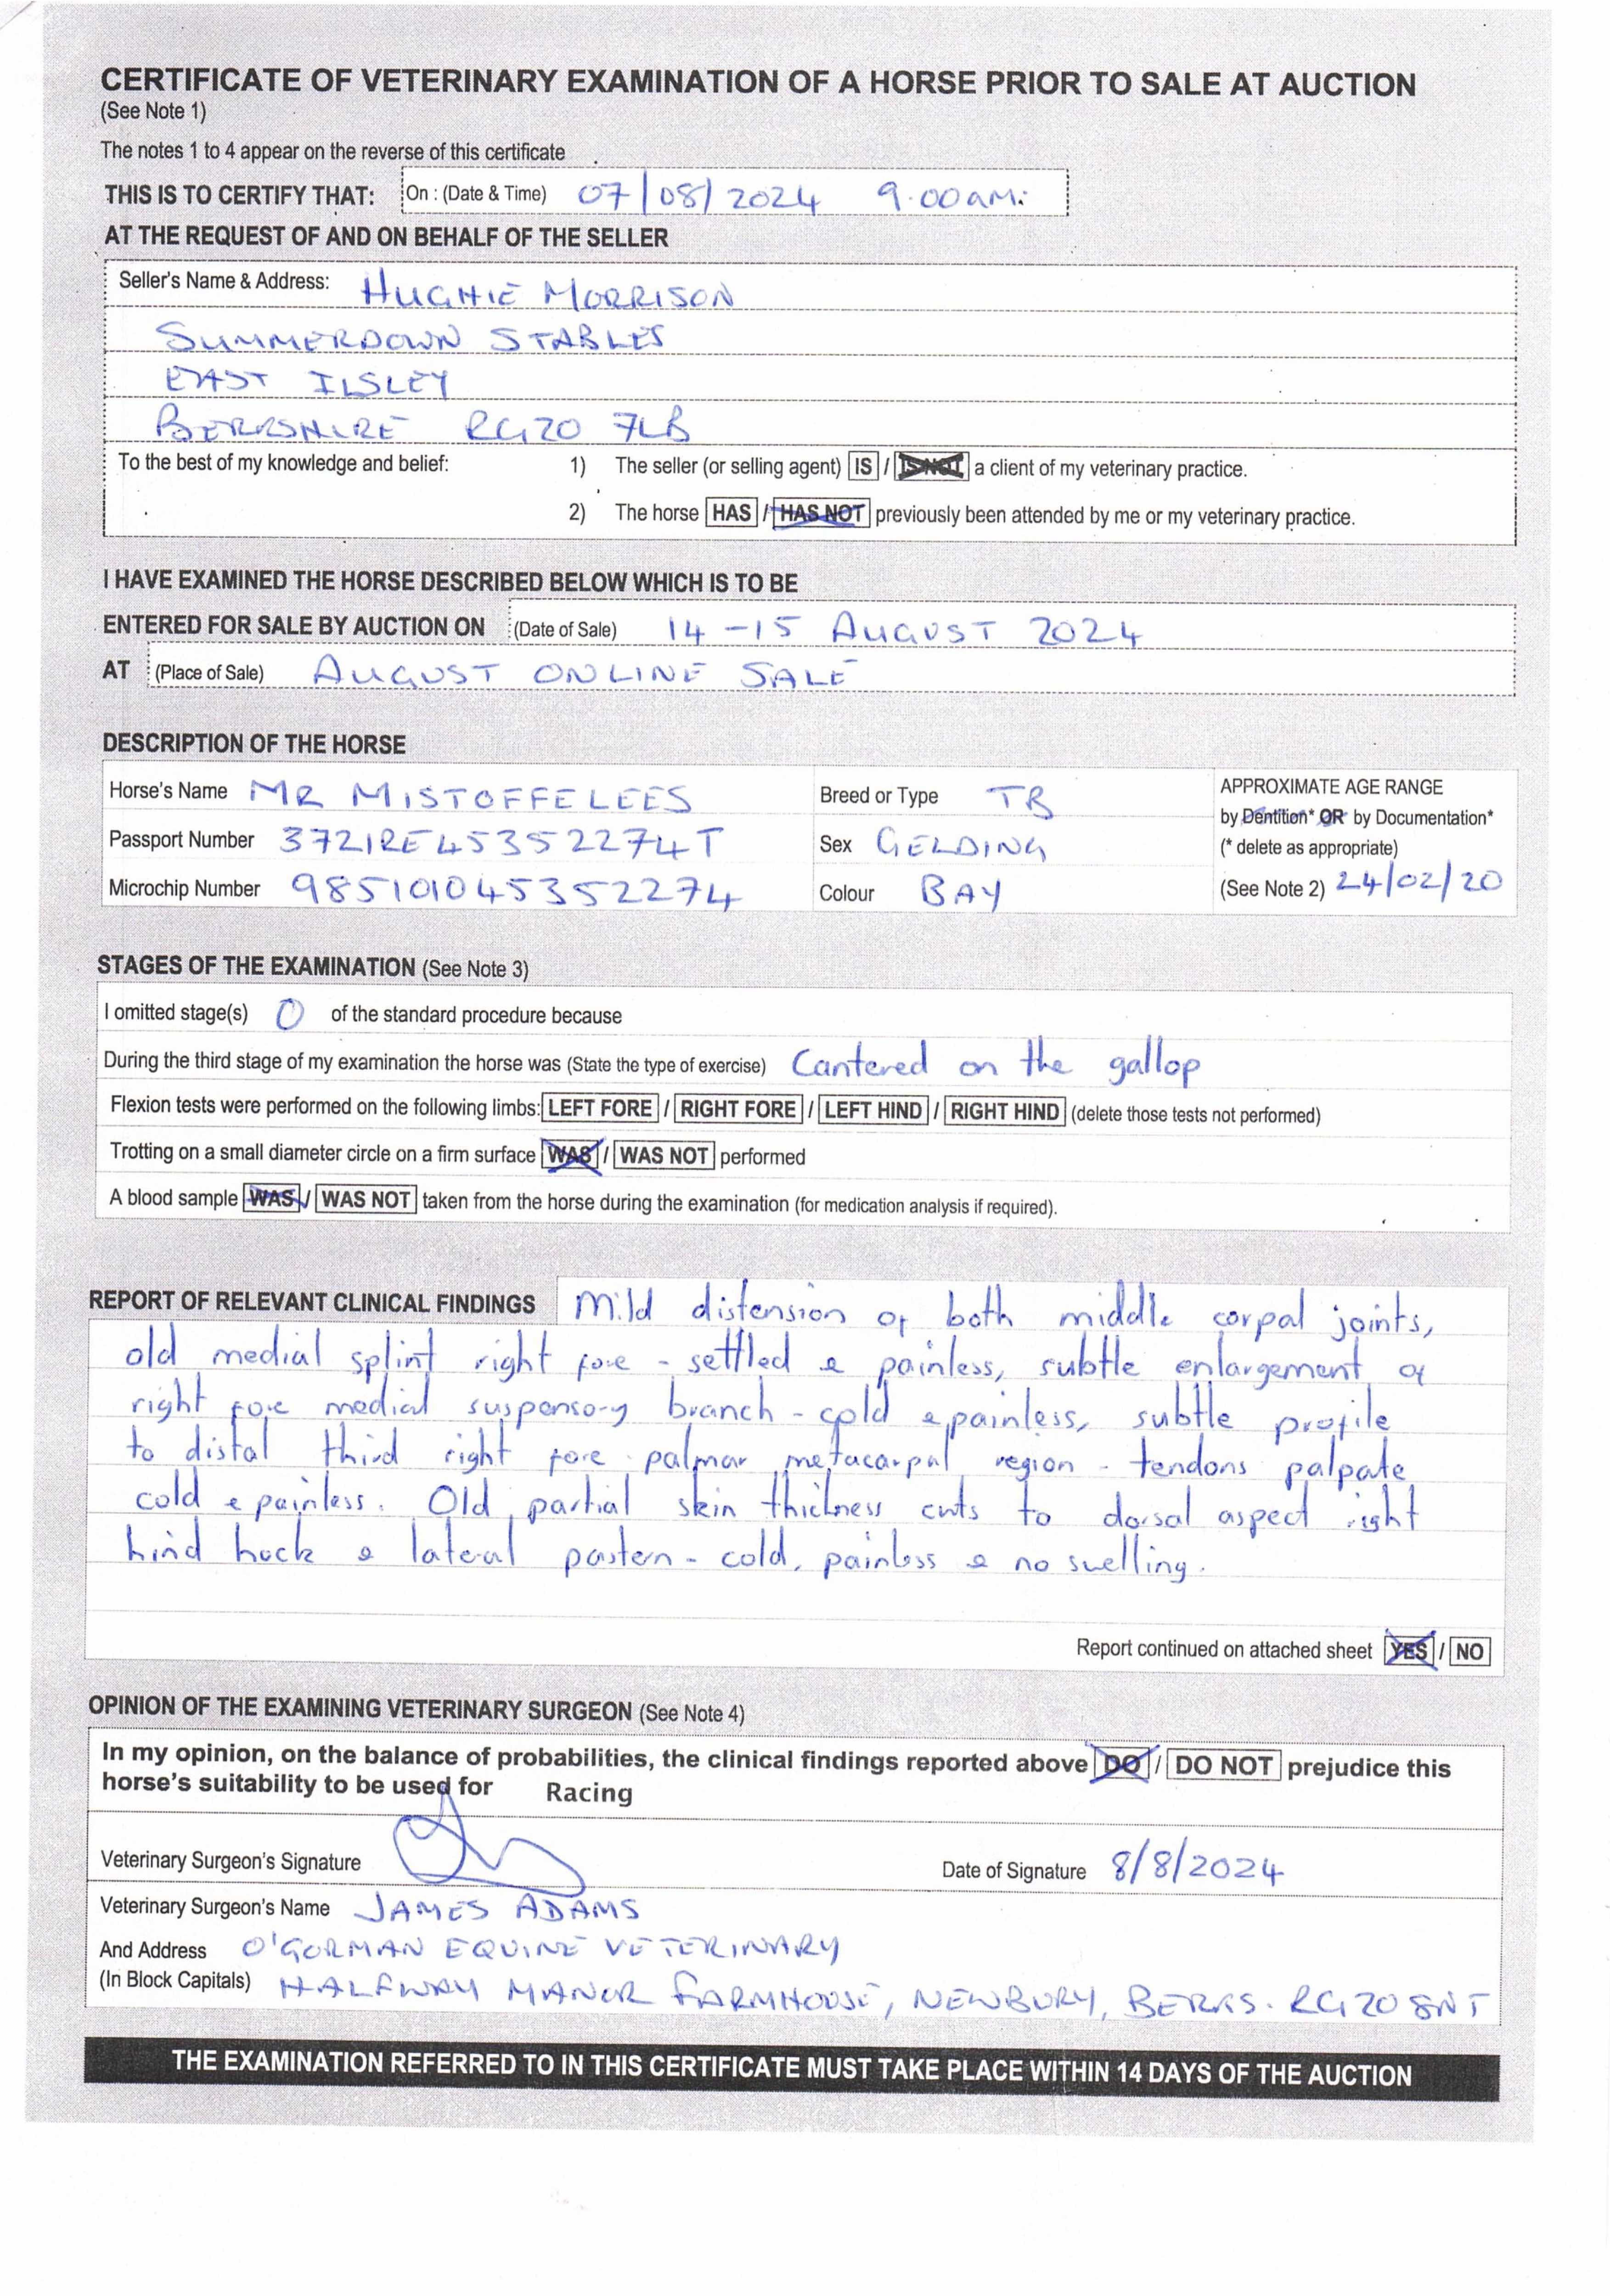 CERTIFICATE OF VETERINARY EXAMINATION OF A HORSE PRIOR TO SALE AT AUCTION
(See Note 1)
The notes 1 to 4 appear on the reverse of this certificate
THIS IS TO CERTIFY THAT: On : (Date & Time) 07/08/2024 9.00am.
AT THE REQUEST OF AND ON BEHALF OF THE SELLER
Seller's Name & Address: HUGHIE MORRISON
SUMMERDOWN STABLES
EAST ILSLEY
BERKSHIRE RG20 7LB
To the best of my knowledge and belief: 1) The seller (or selling agent) IS / IS NOT a client of my veterinary practice.
2) The horse HAS / HAS NOT previously been attended by me or my veterinary practice.
I HAVE EXAMINED THE HORSE DESCRIBED BELOW WHICH IS TO BE
ENTERED FOR SALE BY AUCTION ON (Date of Sale) 14-15 AUGUST 2024
AT (Place of Sale) AUGUST ONLINE SALE
DESCRIPTION OF THE HORSE
Horse's Name MR MISTOFFELEES Breed or Type TB APPROXIMATE AGE RANGE
by Dentition* OR by Documentation*
Passport Number 372IRE45352274T Sex GELDING (* delete as appropriate)
Microchip Number 985101045352274 Colour BAY (See Note 2) 24/02/20
STAGES OF THE EXAMINATION (See Note 3)
I omitted stage(s) 0 of the standard procedure because
During the third stage of my examination the horse was (State the type of exercise) Cantered on the gallop
Flexion tests were performed on the following limbs: LEFT FORE / RIGHT FORE / LEFT HIND / RIGHT HIND (delete those tests not performed)
Trotting on a small diameter circle on a firm surface WAS / WAS NOT performed
A blood sample WAS / WAS NOT taken from the horse during the examination (for medication analysis if required).
REPORT OF RELEVANT CLINICAL FINDINGS Mild distension of both middle carpal joints,
old medial splint right fore - settled & painless, subtle enlargement of
right fore medial suspensory branch - cold & painless, subtle profile
to distal third right fore palmar metacarpal region - tendons palpate
cold & painless. Old partial skin thickness cuts to dorsal aspect right
hind hock & lateral pastern - cold, painless & no swelling.
Report continued on attached sheet YES / NO
OPINION OF THE EXAMINING VETERINARY SURGEON (See Note 4)
In my opinion, on the balance of probabilities, the clinical findings reported above DO / DO NOT prejudice this
horse's suitability to be used for Racing
Veterinary Surgeon's Signature Date of Signature 8/8/2024
Veterinary Surgeon's Name JAMES ADAMS
And Address O'GORMAN EQUINE VETERINARY
(In Block Capitals) HALFWAY MANOR FARMHOUSE, NEWBURY, BERKS. RG20 8NT
THE EXAMINATION REFERRED TO IN THIS CERTIFICATE MUST TAKE PLACE WITHIN 14 DAYS OF THE AUCTION